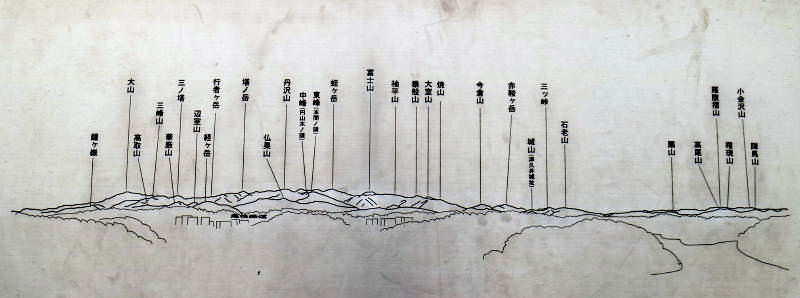 鐘ヶ嶽
大山
高取山
三峰山
華厳山
三ノ塔
辺室山
経ヶ岳
行者ヶ岳
塔ノ岳
仏果山
丹沢山
中峰(円山木ノ頭)
東峰(本間ノ頭)
蛭ヶ岳
富士山
袖平山
黍殻山
大室山
焼山
今倉山
赤鞍ヶ岳
城山(津久井城址)
三ッ峠
石老山
高尾山
権現山
小金沢山
陣馬山